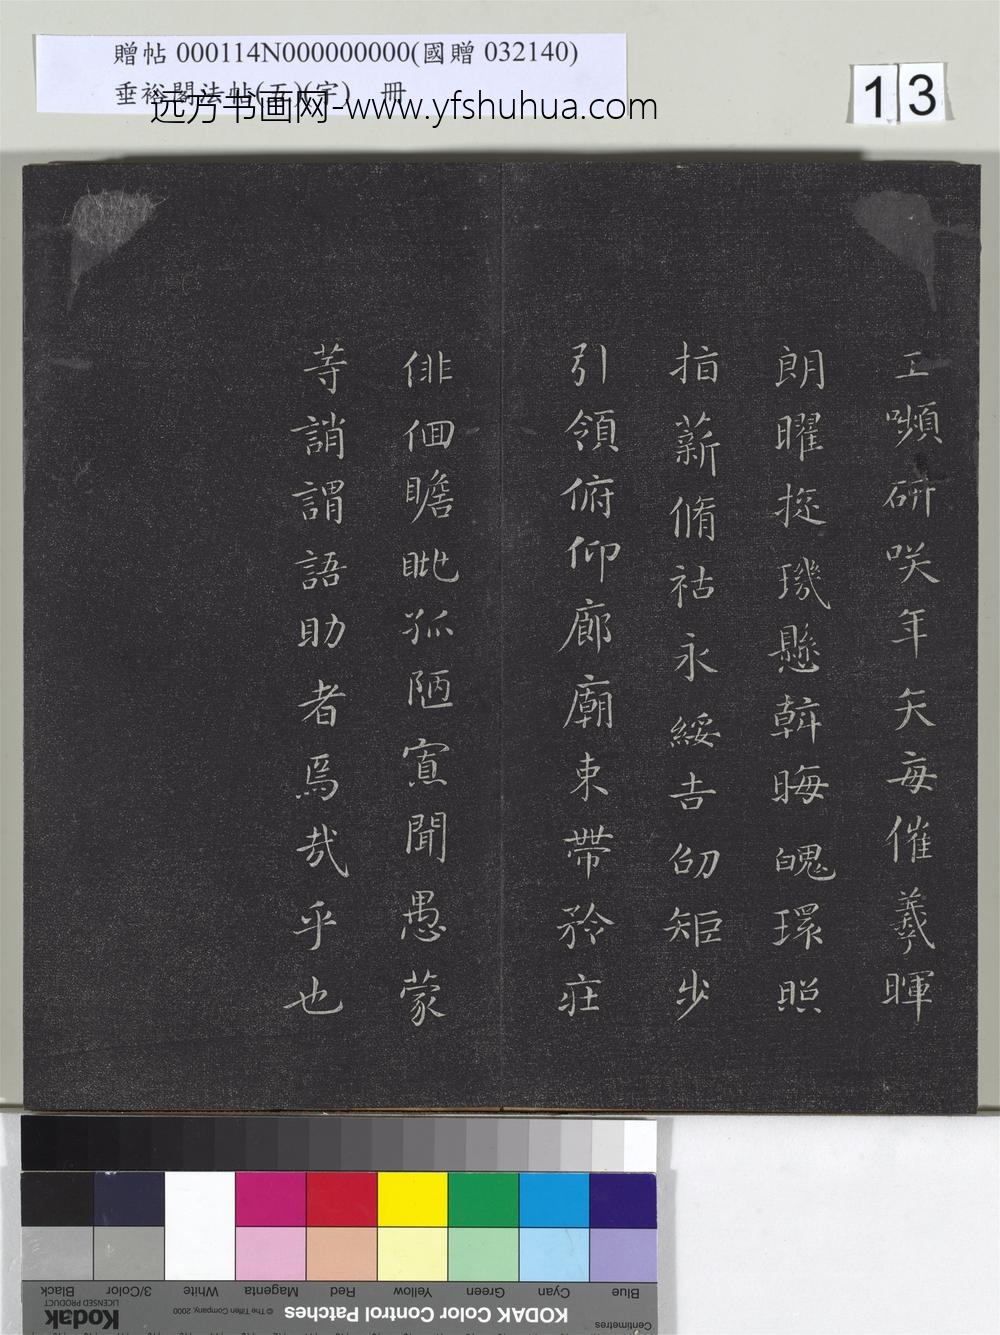 贈帖 000114N000000000(國贈 032140)
垂裕閣法帖(五)(字) 冊
远方书画网-www.yfshuhua.com
13
工嚬研咲年矢每催羲暉
朗曜琁璣懸斡晦魄環照
指薪脩祜永綏吉劭矩步
引領俯仰廊廟束帶矜莊
俳佪瞻眺孤陋寡聞愚蒙
等誚謂語助者焉哉乎也
Blue
Cyan
Green
Yellow
Red
Magenta
White
3/Color
Black
KODAK Color Control Patches
© The Tiffen Company, 2000
Kodak
LICENSED PRODUCT
Centimetres